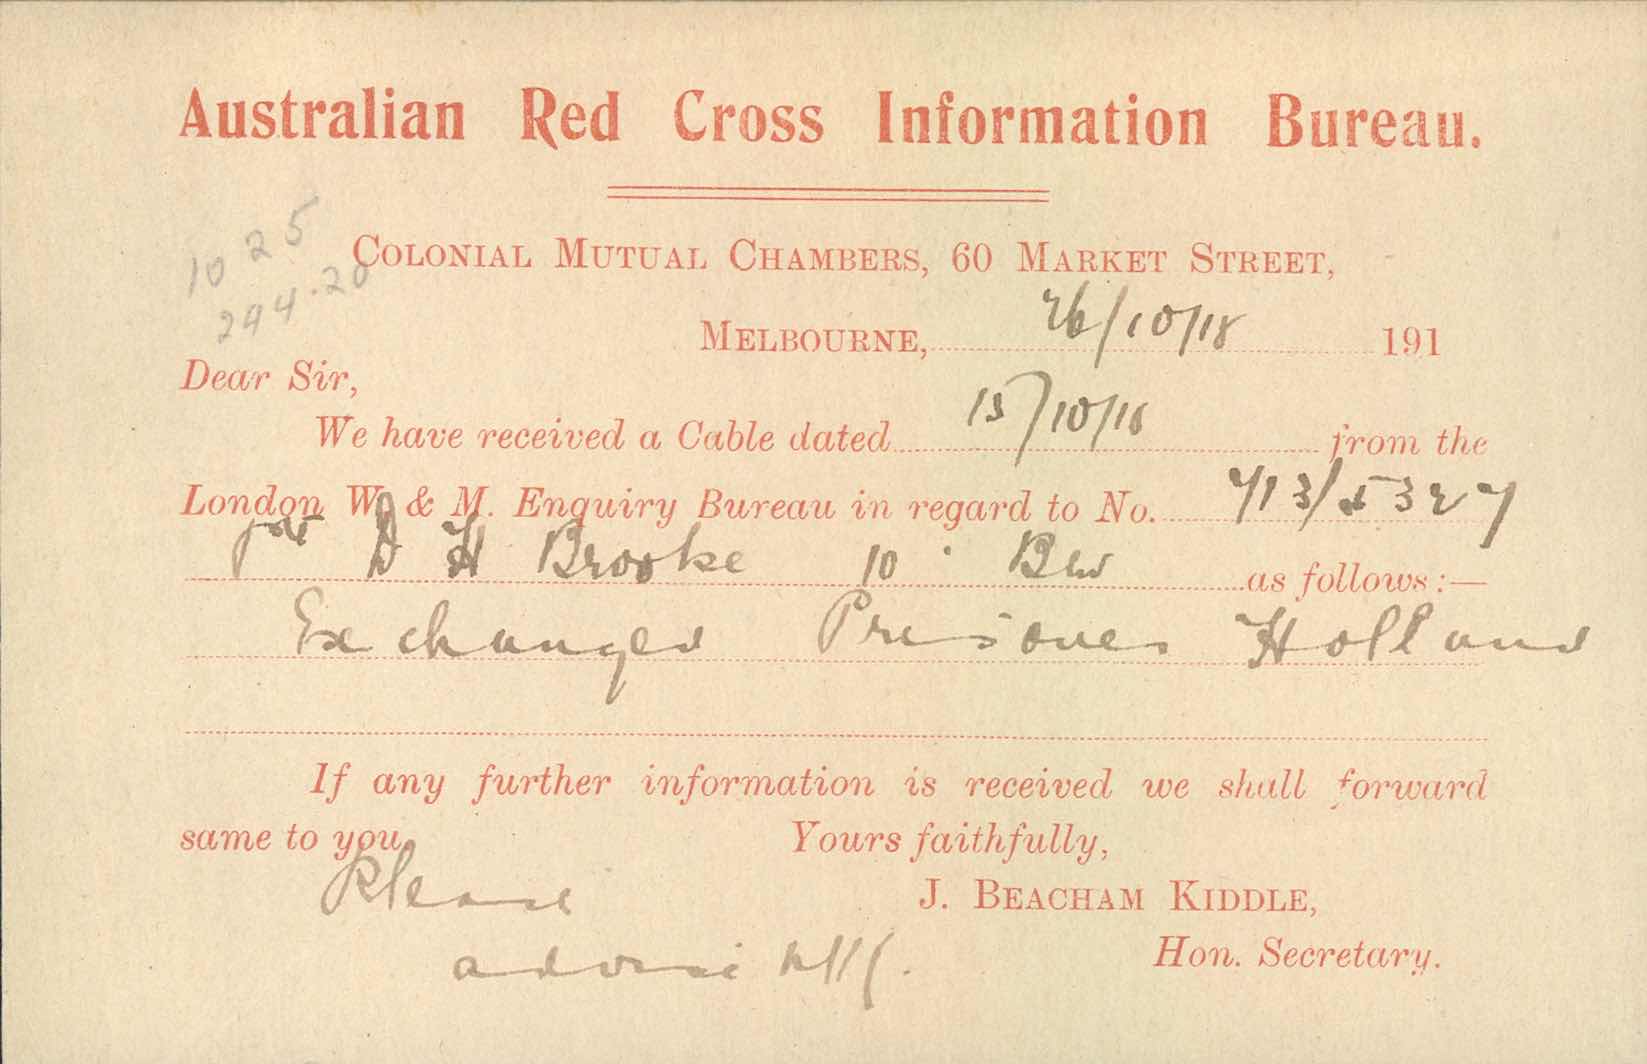 Australian Red Cross Information Bureau.
10 25
294.20
COLONIAL MUTUAL CHAMBERS, 60 MARKET STREET,
MELBOURNE, 26/10/18 191
Dear Sir,
We have received a Cable dated 15/10/18 from the
London W. & M. Enquiry Bureau in regard to No. 713/5327
Pte D H Brooke 10 as follows:—
Exchanged Prisoner Holland
If any further information is received we shall forward
same to you.
Yours faithfully,
Please
J. BEACHAM KIDDLE,
advise
Hon. Secretary.